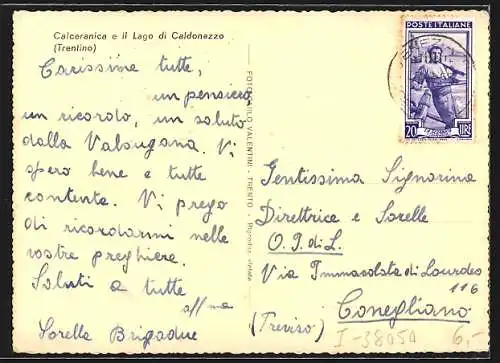 Calceranica e il Lago di Caldonazzo
(Trentino)
Carissime tutte,
un pensiero
un ricordo, un saluto
dalla Valsugana. Vi
spero bene e tutte
contente. Vi prego
di ricordarmi nelle
vostre preghiere.
Saluti a tutte
aff/ma
Sorella
VALENTINI - TRENTO - Riprod. vietata
POSTE ITALIANE
20 LIRE
Gentissima Signorina
Direttrice e Sorelle
O. P. di L.
Via Immacolata di Lourdes
116
Conegliano
(Treviso)
I-38050
6,-